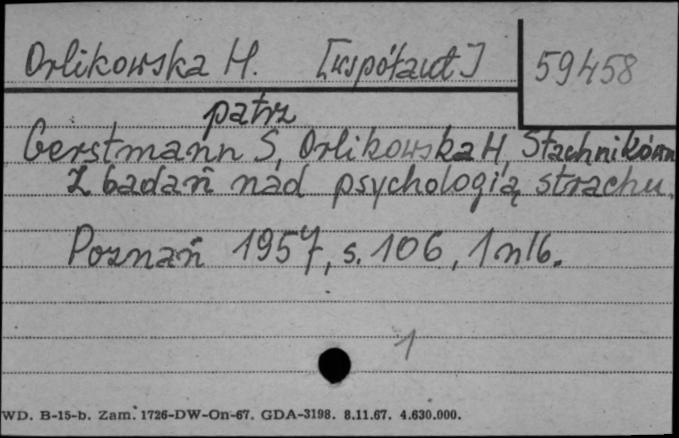 Orlikowska H. [współaut] 59458
patrz
Gerstmann S, Orlikowska H, Stachnikówn
Z badań nad psychologią strachu.
Poznań 1957, s. 106, 1 nlb.
1
WD. B-15-b. Zam. 1726-DW-On-67. GDA-3198. 8.11.67. 4.630.000.